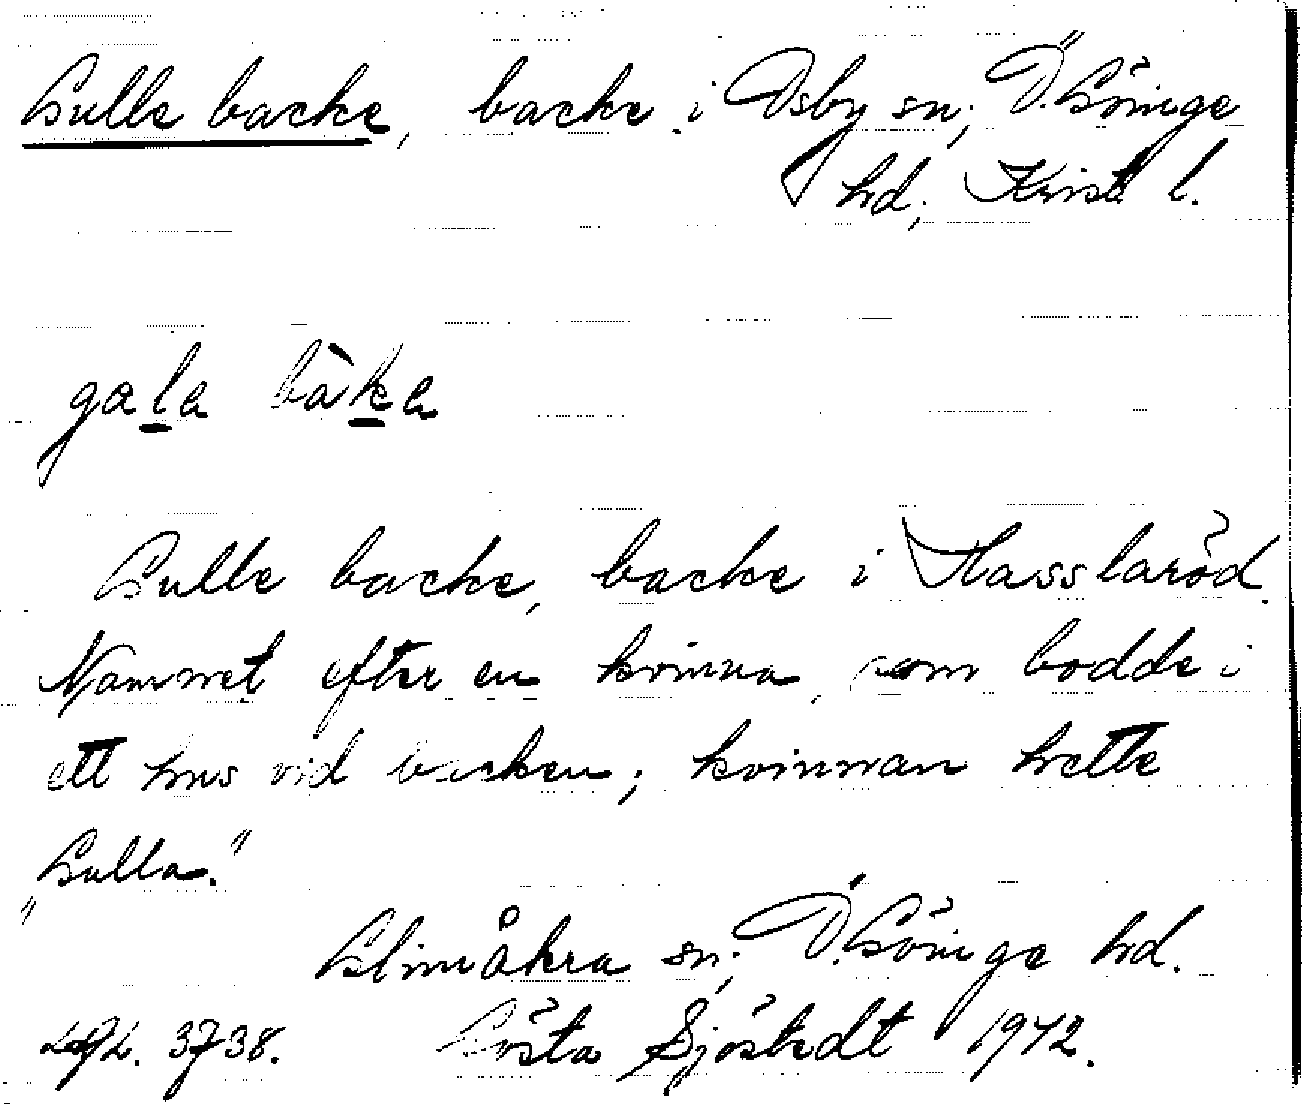 Gulle backe, backe i Osby sn, Ö. Göinge
hd, Krist. l.
gala bàka
Gulle backe, backe i Hasslaröd.
Namnet efter en kvinna, som bodde i
ett hus vid backen; kvinnan hette
"Gulla."
Glimåkra sn, Ö. Göinge hd.
3738. Gösta Sjöstedt 1942.